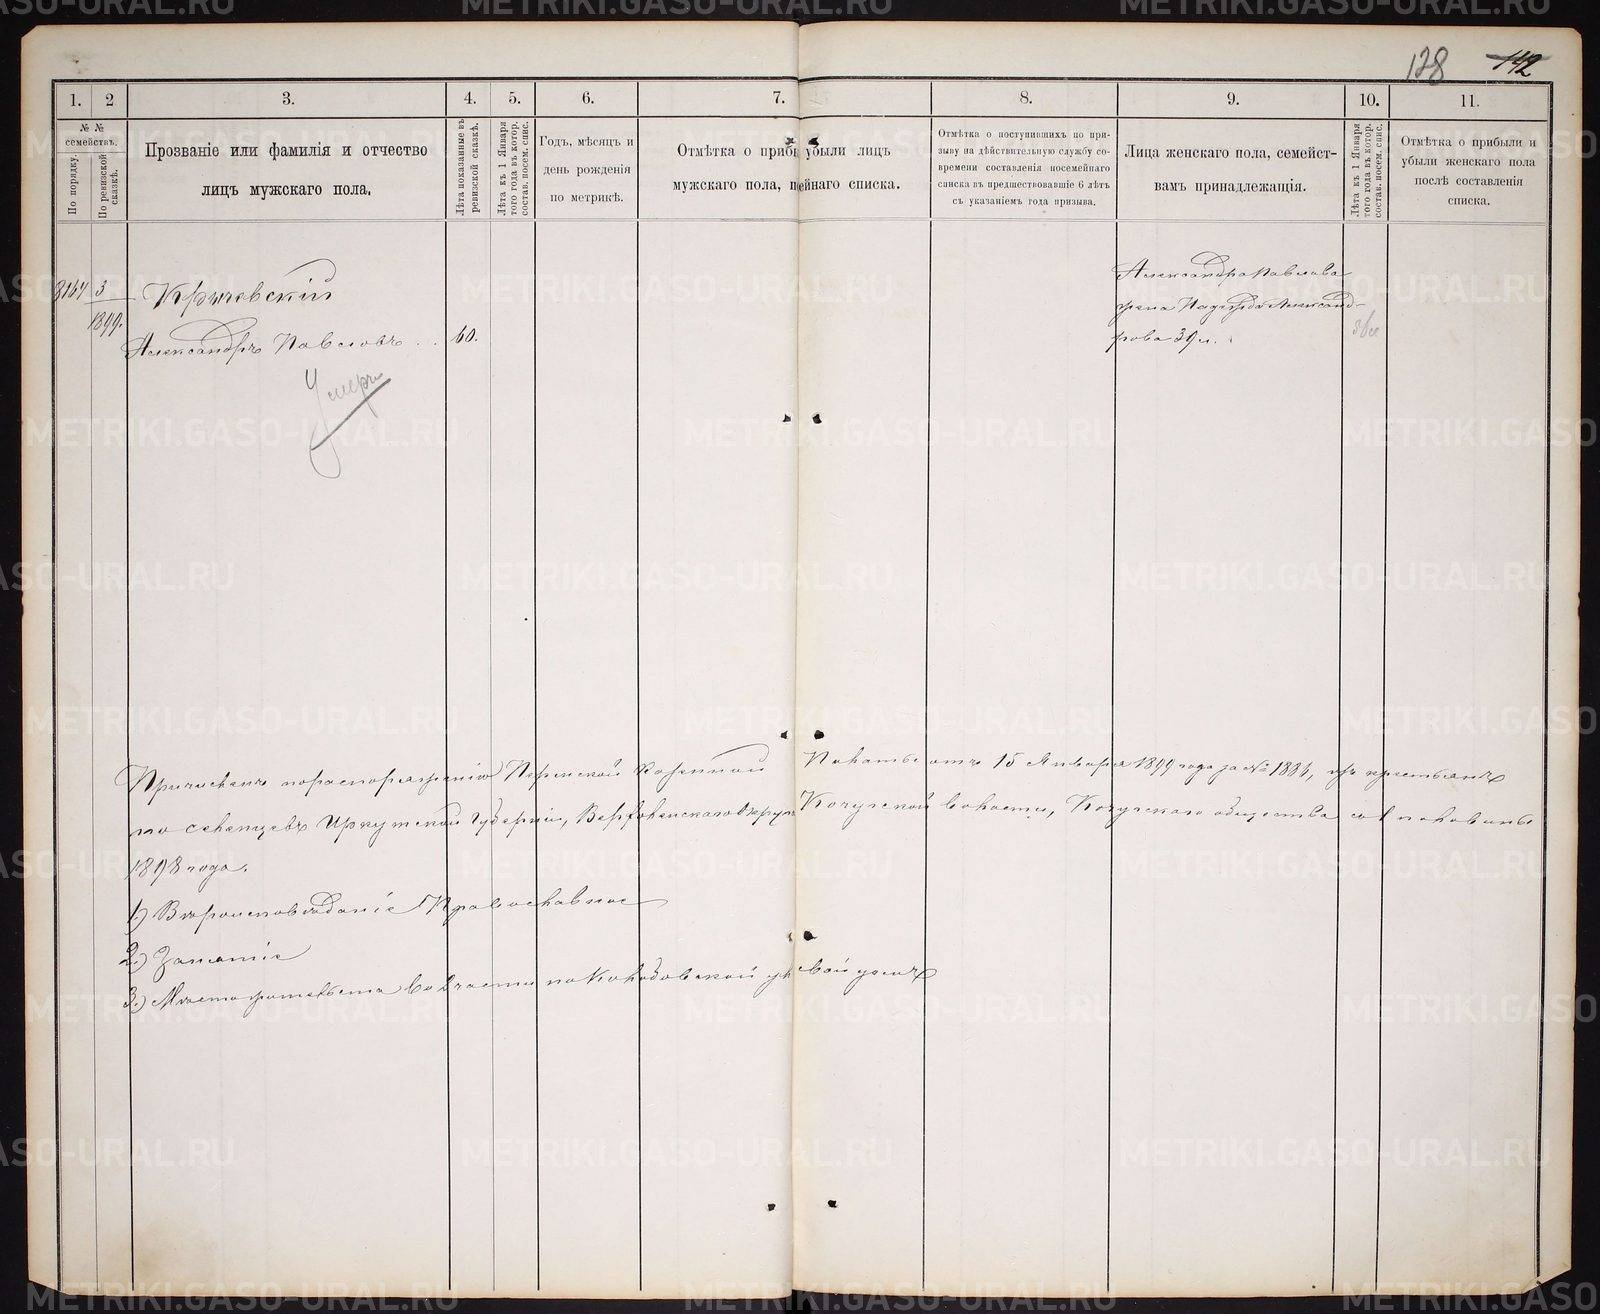 128 142
1. 2 3. 4. 5. 6. 7. 8. 9. 10. 11.
№ №
семействъ.
По порядку.
По ревизской сказкѣ.
Прозваніе или фамилія и отчество
лицъ мужскаго пола.
Лѣта показанные въ
ревизской сказкѣ.
Лѣта къ 1 Января
того года въ котор.
состав. посем. спис.
Годъ, мѣсяцъ и
день рожденія
по метрикѣ.
Отмѣтка о приб убыли лицъ
мужскаго пола, п ейнаго списка.
Отмѣтка о поступившихъ по при-
зыву на дѣйствительную службу со-
времени составленія посемейнаго
списка въ предшествовавшіе 6 лѣтъ
съ указаніемъ года призыва.
Лица женскаго пола, семейст-
вамъ принадлежащія.
Лѣта къ 1 Января
того года въ котор.
состав. посем. спис.
Отмѣтка о прибыли и
убыли женскаго пола
послѣ составленія
списка.
8164 3
1899.
Кричевскій
Александръ Павловъ . . 60.
Умеръ
Александра Павлова
жена Надежда Александ-
рова 39 л.
Причисленъ по распоряженію Пермской Казенной Палаты отъ 15 Января 1899 года за № 1884, изъ крестьянъ
Иркутской Губерніи, Верхоленскаго округа Качугской волости, Качугскаго общества со 2 половины
1898 года.
1) Вѣроисповѣданіе Православное
2) Занятіе
3) Мѣстожительства во 2 части по Колобовской ул. свой домъ
METRIKI.GASO-URAL.RU